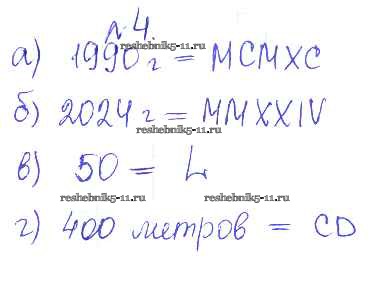 л. 4.
reshebnik5-11.ru
а) 1990 г = MCMXC
б) 2024 г = MMXXIV
reshebnik5-11.ru
в) 50 = L
reshebnik5-11.ru reshebnik5-11.ru
г) 400 метров = CD